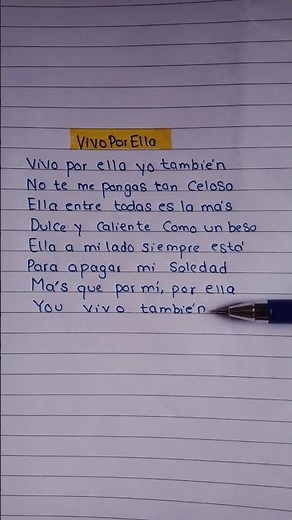 Vivo Por Ella
Vivo por ella yo también
No te me pongas tan Celoso
Ella entre todas es la más
Dulce y Caliente Como un beso
Ella a mi lado siempre está
Para apagar mi Soledad
Más que por mí, por ella
You vivo también